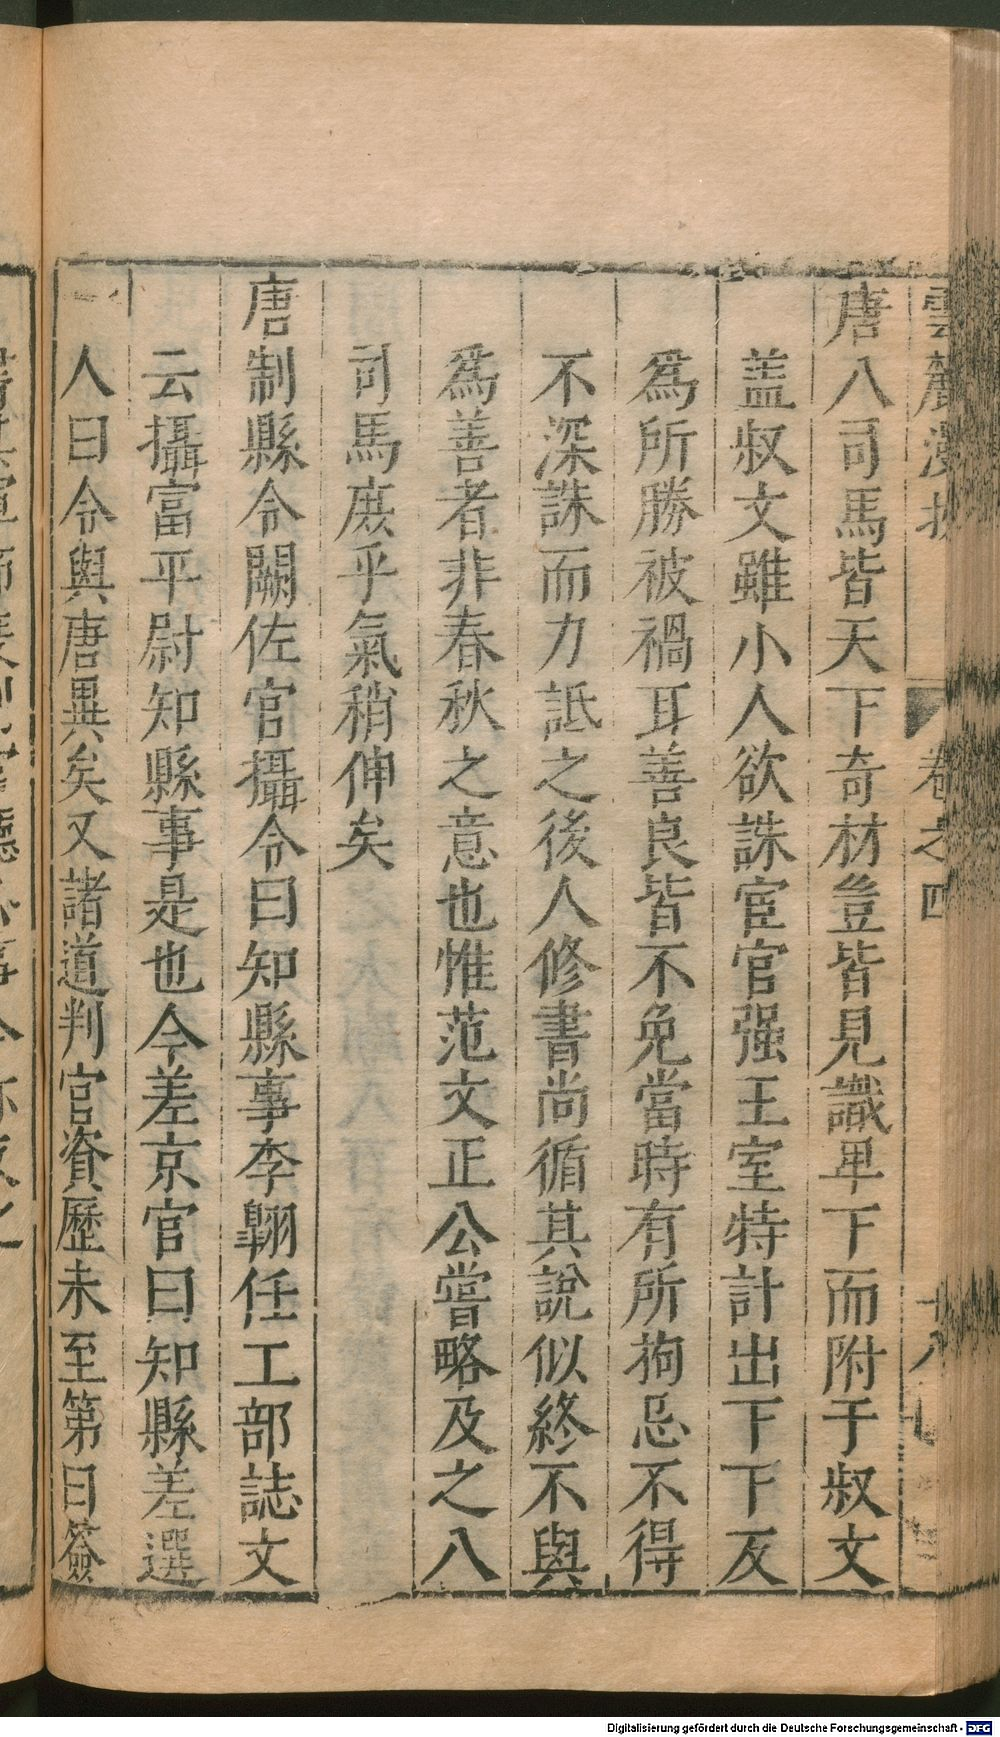 雲麓漫抄 卷之四 十八
唐八司馬皆天下奇材豈皆見識卑下而附于叔文
盖叔文雖小人欲誅宦官强王室特計出下下反
為所勝被禍耳善良皆不免當時有所拘忌不得
不深誅而力詆之後人修書尚循其說似終不與
為善者非春秋之意也惟范文正公嘗略及之八
司馬庶乎氣稍伸矣
唐制縣令闕佐官攝令曰知縣事李翱任工部誌文
云攝富平尉知縣事是也今差京官曰知縣差選
人曰令與唐異矣又諸道判官資歷未至第曰簽
Digitalisierung gefördert durch die Deutsche Forschungsgemeinschaft - DFG